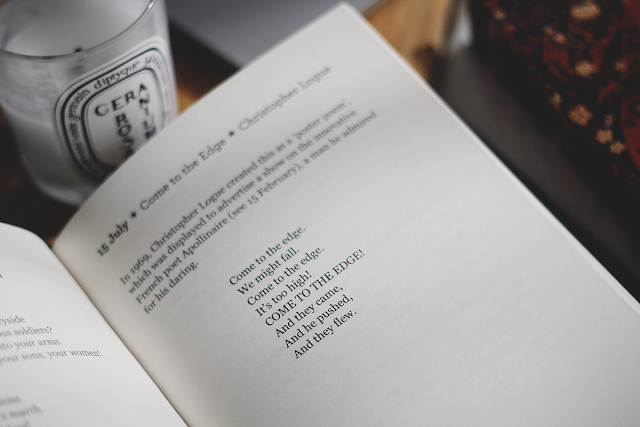 diptyque
GERANIUM
ROSA
15 July ★ Come to the Edge ★ Christopher Logue
In 1969, Christopher Logue created this as a 'poster poem',
which was displayed to advertise a show on the innovative
French poet Apollinaire (see 15 February), a man he admired
for his daring.
Come to the edge.
We might fall.
Come to the edge.
It's too high!
COME TO THE EDGE!
And they came,
And he pushed,
And they flew.
soldiers?
to your arms
your sons, your women!
march